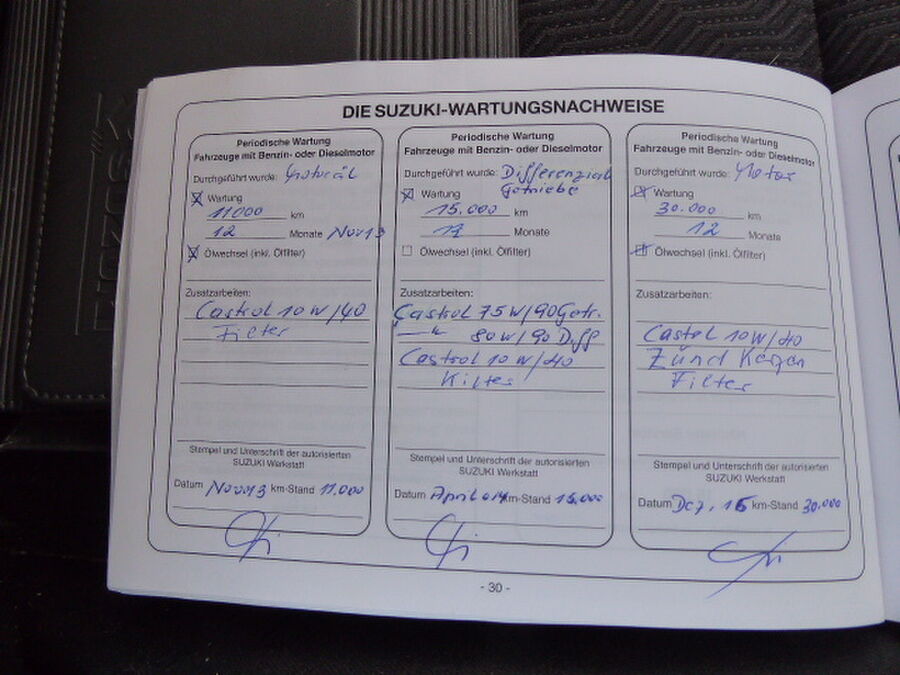 DIE SUZUKI-WARTUNGSNACHWEISE
Periodische Wartung
Fahrzeuge mit Benzin- oder Dieselmotor
Durchgeführt wurde: Motoröl
Wartung
11000 km
12 Monate Nov 13
Ölwechsel (inkl. Ölfilter)
Zusatzarbeiten:
Castrol 10W/40
Filter
Stempel und Unterschrift der autorisierten
SUZUKI Werkstatt
Datum Nov 13 km-Stand 11.000
Periodische Wartung
Fahrzeuge mit Benzin- oder Dieselmotor
Durchgeführt wurde: Differenzial
Getriebe
Wartung
15.000 km
Monate
Ölwechsel (inkl. Ölfilter)
Zusatzarbeiten:
Castrol 75W/90 Getr.
80W/90 Diff
Castrol 10W/40
Filter
Stempel und Unterschrift der autorisierten
SUZUKI Werkstatt
Datum April 014 km-Stand 15.000
Periodische Wartung
Fahrzeuge mit Benzin- oder Dieselmotor
Durchgeführt wurde: Motor
Wartung
30.000 km
12 Monate
Ölwechsel (inkl. Ölfilter)
Zusatzarbeiten:
Castrol 10W/40
Zünd Kerzen
Filter
Stempel und Unterschrift der autorisierten
SUZUKI Werkstatt
Datum Dez. 15 km-Stand 30.000
- 30 -
SUZUKI